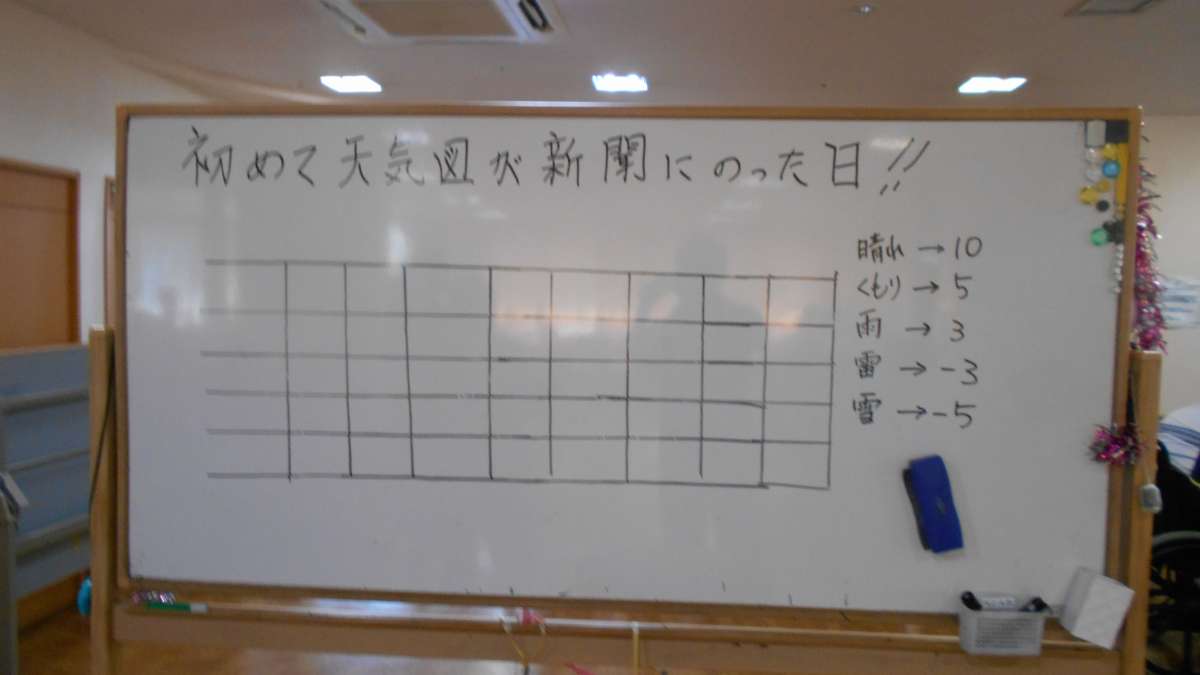 初めて天気図が新聞にのった日!!
晴れ → 10
くもり → 5
雨 → 3
雷 → -3
雪 → -5